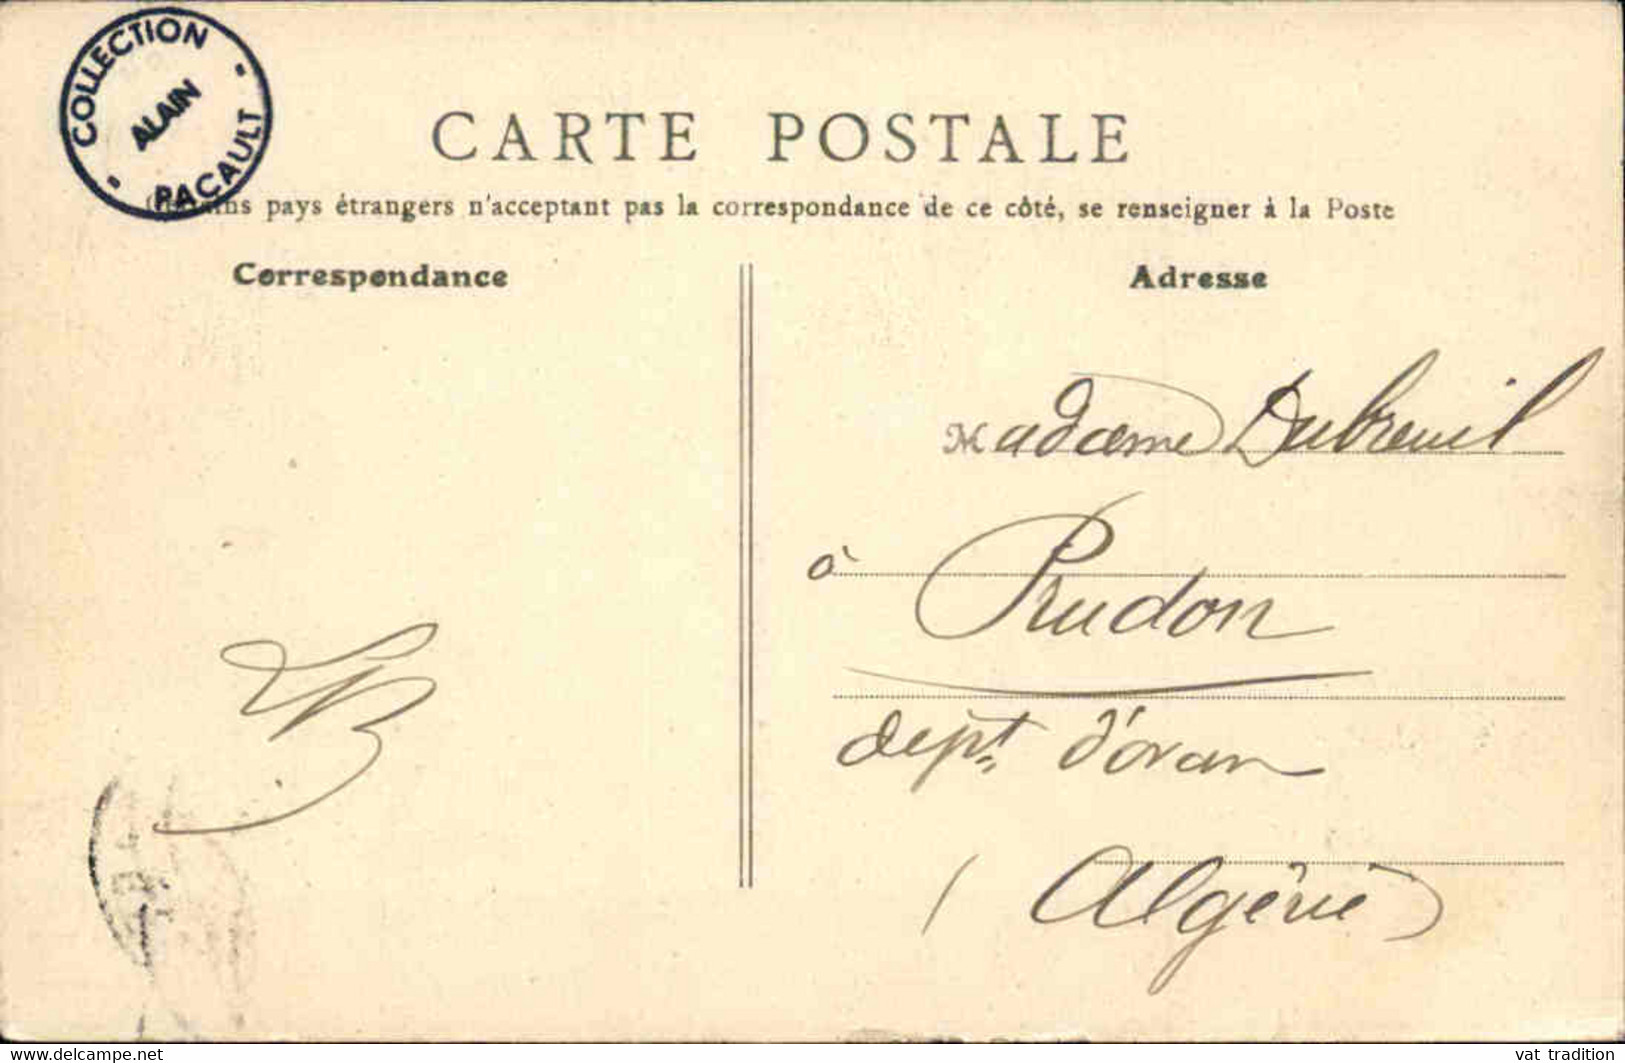 COLLECTION
ALAIN
PACAULT
CARTE POSTALE
pays étrangers n'acceptant pas la correspondance de ce côté, se renseigner à la Poste
Correspondance
Adresse
Madame Dubreuil
à Prudon
dept d'Oran
(Algérie)
www.delcampe.net
vat_tradition